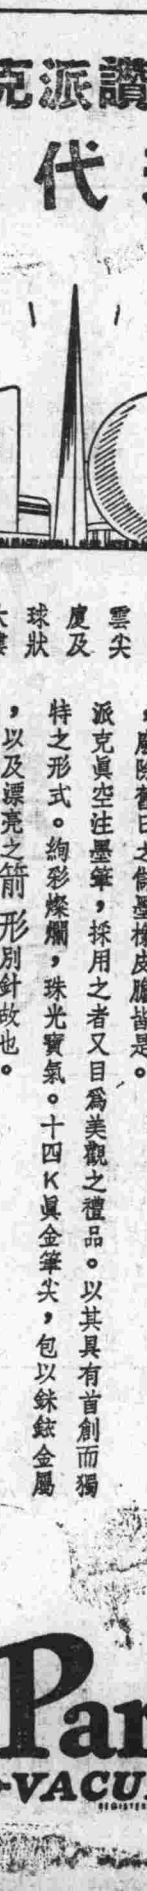 克派讚
代
雲尖
廈及
球狀
，廢除舊日之儲墨橡皮膽皆是。
派克眞空注墨筆，採用之者又目爲美觀之禮品。以其具有首創而獨
特之形式。絢彩燦爛，珠光寶氣。十四K眞金筆尖，包以銥鉉金屬
，以及漂亮之箭形別針故也。
Par
-VACU
REGISTER